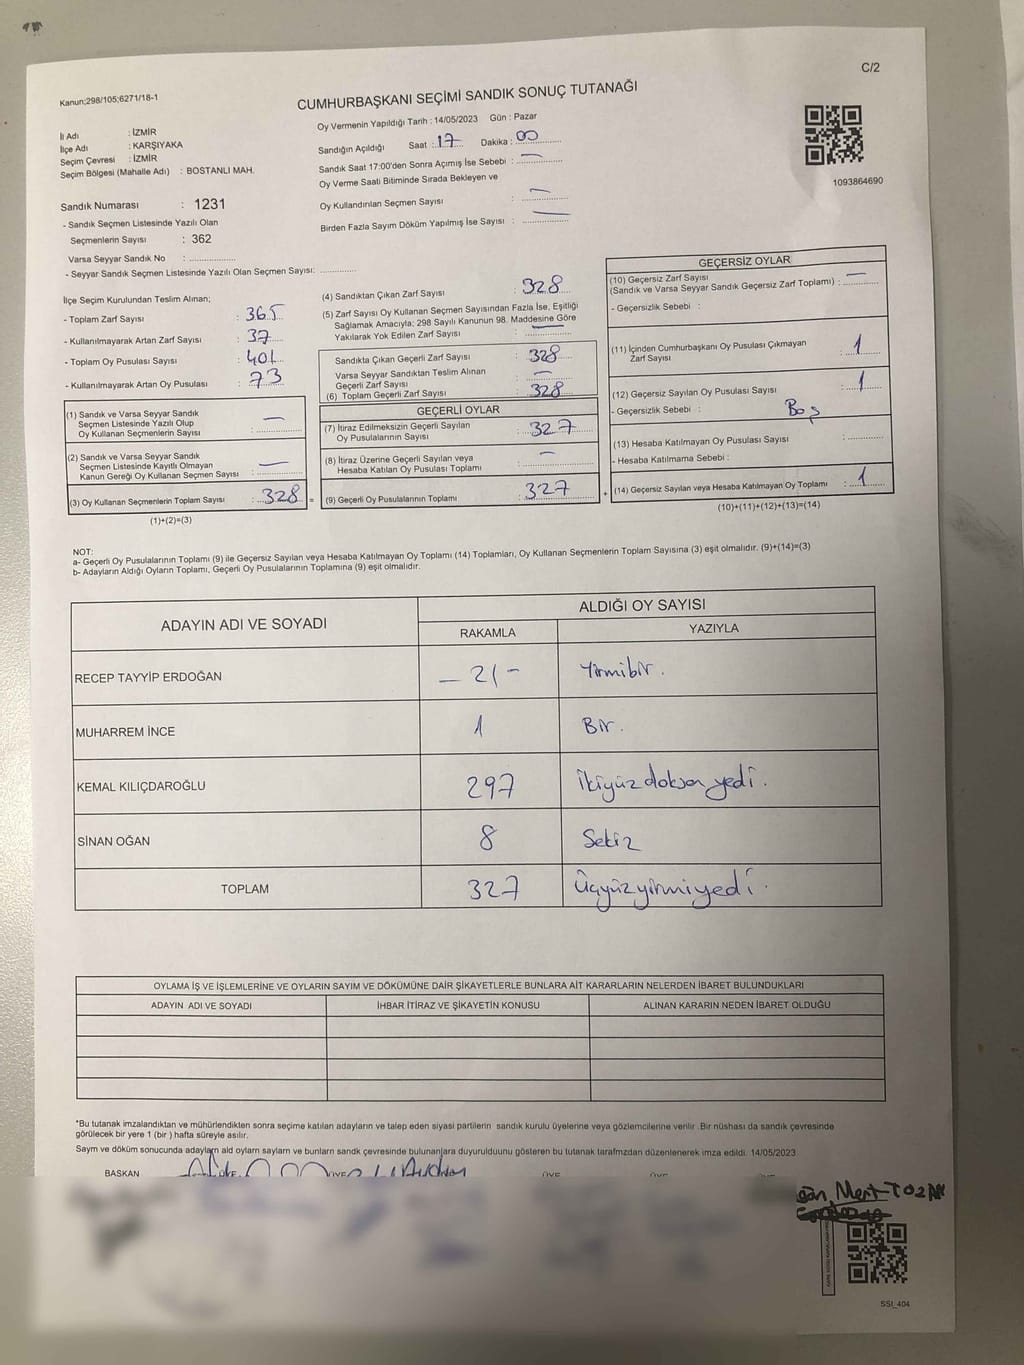 C/2
Kanun;298/105;6271/18-1
CUMHURBAŞKANI SEÇİMİ SANDIK SONUÇ TUTANAĞI
Oy Vermenin Yapıldığı Tarih : 14/05/2023 Gün : Pazar
İl Adı : İZMİR
İlçe Adı : KARŞIYAKA
Seçim Çevresi : İZMİR
Seçim Bölgesi (Mahalle Adı) : BOSTANLI MAH.
Sandığın Açıldığı Saat : 17 Dakika : 00
Sandık Saat 17:00'den Sonra Açımış İse Sebebi : —
Oy Verme Saati Bitiminde Sırada Bekleyen ve
Oy Kullandırılan Seçmen Sayısı : —
Birden Fazla Sayım Döküm Yapılmış İse Sayısı : —
1093864690
Sandık Numarası : 1231
- Sandık Seçmen Listesinde Yazılı Olan
Seçmenlerin Sayısı : 362
Varsa Seyyar Sandık No :
- Seyyar Sandık Seçmen Listesinde Yazılı Olan Seçmen Sayısı:
İlçe Seçim Kurulundan Teslim Alınan;
- Toplam Zarf Sayısı : 365
- Kullanılmayarak Artan Zarf Sayısı : 37
- Toplam Oy Pusulası Sayısı : 401
- Kullanılmayarak Artan Oy Pusulası : 73
(1) Sandık ve Varsa Seyyar Sandık
Seçmen Listesinde Yazılı Olup
Oy Kullanan Seçmenlerin Sayısı : —
(2) Sandık ve Varsa Seyyar Sandık
Seçmen Listesinde Kayıtlı Olmayan
Kanun Gereği Oy Kullanan Seçmen Sayısı : —
(3) Oy Kullanan Seçmenlerin Toplam Sayısı : 328 =
(1)+(2)=(3)
(4) Sandıktan Çıkan Zarf Sayısı : 328
(5) Zarf Sayısı Oy Kullanan Seçmen Sayısından Fazla İse, Eşitliği
Sağlamak Amacıyla; 298 Sayılı Kanunun 98. Maddesine Göre
Yakılarak Yok Edilen Zarf Sayısı : —
Sandıkta Çıkan Geçerli Zarf Sayısı : 328
Varsa Seyyar Sandıktan Teslim Alınan
Geçerli Zarf Sayısı : —
(6) Toplam Geçerli Zarf Sayısı : 328
GEÇERLİ OYLAR
(7) İtiraz Edilmeksizin Geçerli Sayılan
Oy Pusulalarının Sayısı : 327
(8) İtiraz Üzerine Geçerli Sayılan veya
Hesaba Katılan Oy Pusulası Toplamı : —
(9) Geçerli Oy Pusulalarının Toplamı : 327 +
GEÇERSİZ OYLAR
(10) Geçersiz Zarf Sayısı
(Sandık ve Varsa Seyyar Sandık Geçersiz Zarf Toplamı) : —
- Geçersizlik Sebebi :
(11) İçinden Cumhurbaşkanı Oy Pusulası Çıkmayan
Zarf Sayısı : 1
(12) Geçersiz Sayılan Oy Pusulası Sayısı : 1
- Geçersizlik Sebebi : Boş
(13) Hesaba Katılmayan Oy Pusulası Sayısı :
- Hesaba Katılmama Sebebi :
(14) Geçersiz Sayılan veya Hesaba Katılmayan Oy Toplamı : 1
(10)+(11)+(12)+(13)=(14)
NOT:
a- Geçerli Oy Pusulalarının Toplamı (9) ile Geçersiz Sayılan veya Hesaba Katılmayan Oy Toplamı (14) Toplamları, Oy Kullanan Seçmenlerin Toplam Sayısına (3) eşit olmalıdır. (9)+(14)=(3)
b- Adayların Aldığı Oyların Toplamı, Geçerli Oy Pusulalarının Toplamına (9) eşit olmalıdır.
ADAYIN ADI VE SOYADI
ALDIĞI OY SAYISI
RAKAMLA YAZIYLA
RECEP TAYYİP ERDOĞAN — 21 - Yirmibir.
MUHARREM İNCE 1 Bir.
KEMAL KILIÇDAROĞLU 297 İkiyüz doksan yedi.
SİNAN OĞAN 8 Sekiz
TOPLAM 327 Üçyüzyirmiyedi.
OYLAMA İŞ VE İŞLEMLERİNE VE OYLARIN SAYIM VE DÖKÜMÜNE DAİR ŞİKAYETLERLE BUNLARA AİT KARARLARIN NELERDEN İBARET BULUNDUKLARI
ADAYIN ADI VE SOYADI İHBAR İTİRAZ VE ŞİKAYETİN KONUSU ALINAN KARARIN NEDEN İBARET OLDUĞU
*Bu tutanak imzalandıktan ve mühürlendikten sonra seçime katılan adayların ve talep eden siyasi partilerin sandık kurulu üyelerine veya gözlemcilerine verilir .Bir nüshası da sandık çevresinde
görülecek bir yere 1 (bir ) hafta süreyle asılır.
Sayım ve döküm sonucunda adayların ald oyların sayların ve bunların sandk çevresinde bulunanlara duyurulduunu gösteren bu tutanak tarafmzdan düzenlenerek imza edildi. 14/05/2023
BAŞKAN ÜYE ÜYE ÜYE ÜYE
Mert TOZAN
SSI_404